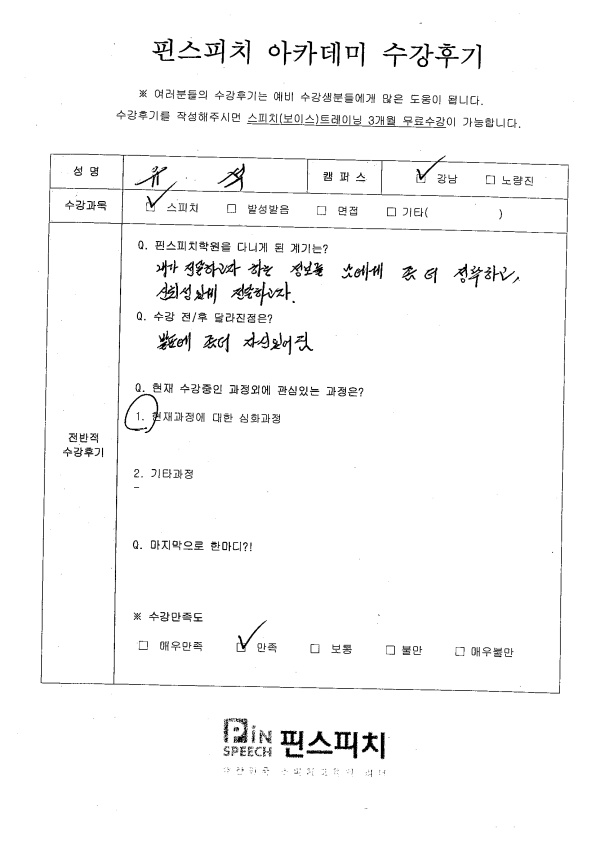 핀스피치 아카데미 수강후기
※ 여러분들의 수강후기는 예비 수강생분들에게 많은 도움이 됩니다.
수강후기를 작성해주시면 스피치(보이스)트레이닝 3개월 무료수강이 가능합니다.
성 명 유 캠 퍼 스 ☑ 강남 □ 노량진
수강과목 ☑ 스피치 □ 발성발음 □ 면접 □ 기타( )
Q. 핀스피치학원을 다니게 된 계기는?
내가 전달하고자 하는 정보를 남에게 좀 더 정확하고,
신뢰성있게 전달하고자.
Q. 수강 전/후 달라진점은?
발표에 좀더 자신있어짐
Q. 현재 수강중인 과정외에 관심있는 과정은?
1. 현재과정에 대한 심화과정
전반적
수강후기
2. 기타과정
-
Q. 마지막으로 한마디?!
※ 수강만족도
□ 매우만족 ☑ 만족 □ 보통 □ 불만 □ 매우불만
PiN
SPEECH 핀스피치